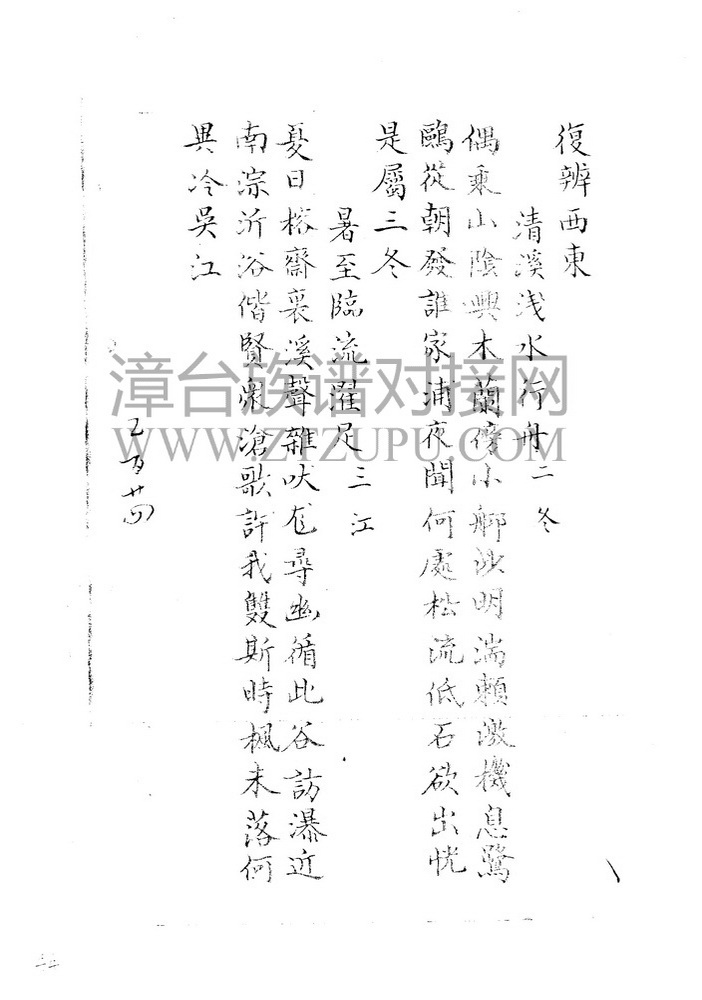 復辨西東
清溪浅水行舟 二冬
偶乘山陰興木蘭傍小舸沙明湍賴激機息鷺
鷗從朝發誰家浦夜聞何處松流低石欲出恍
是屬三冬
暑至臨流濯足 三江
夏日榕齋裏溪聲雜吠尨尋幽循此谷訪瀑近
南淙沂浴偕賢衆滄歌許我雙斯時楓未落何
異冷吳江
漳台族谱对接网
WWW.ZTZUPU.COM